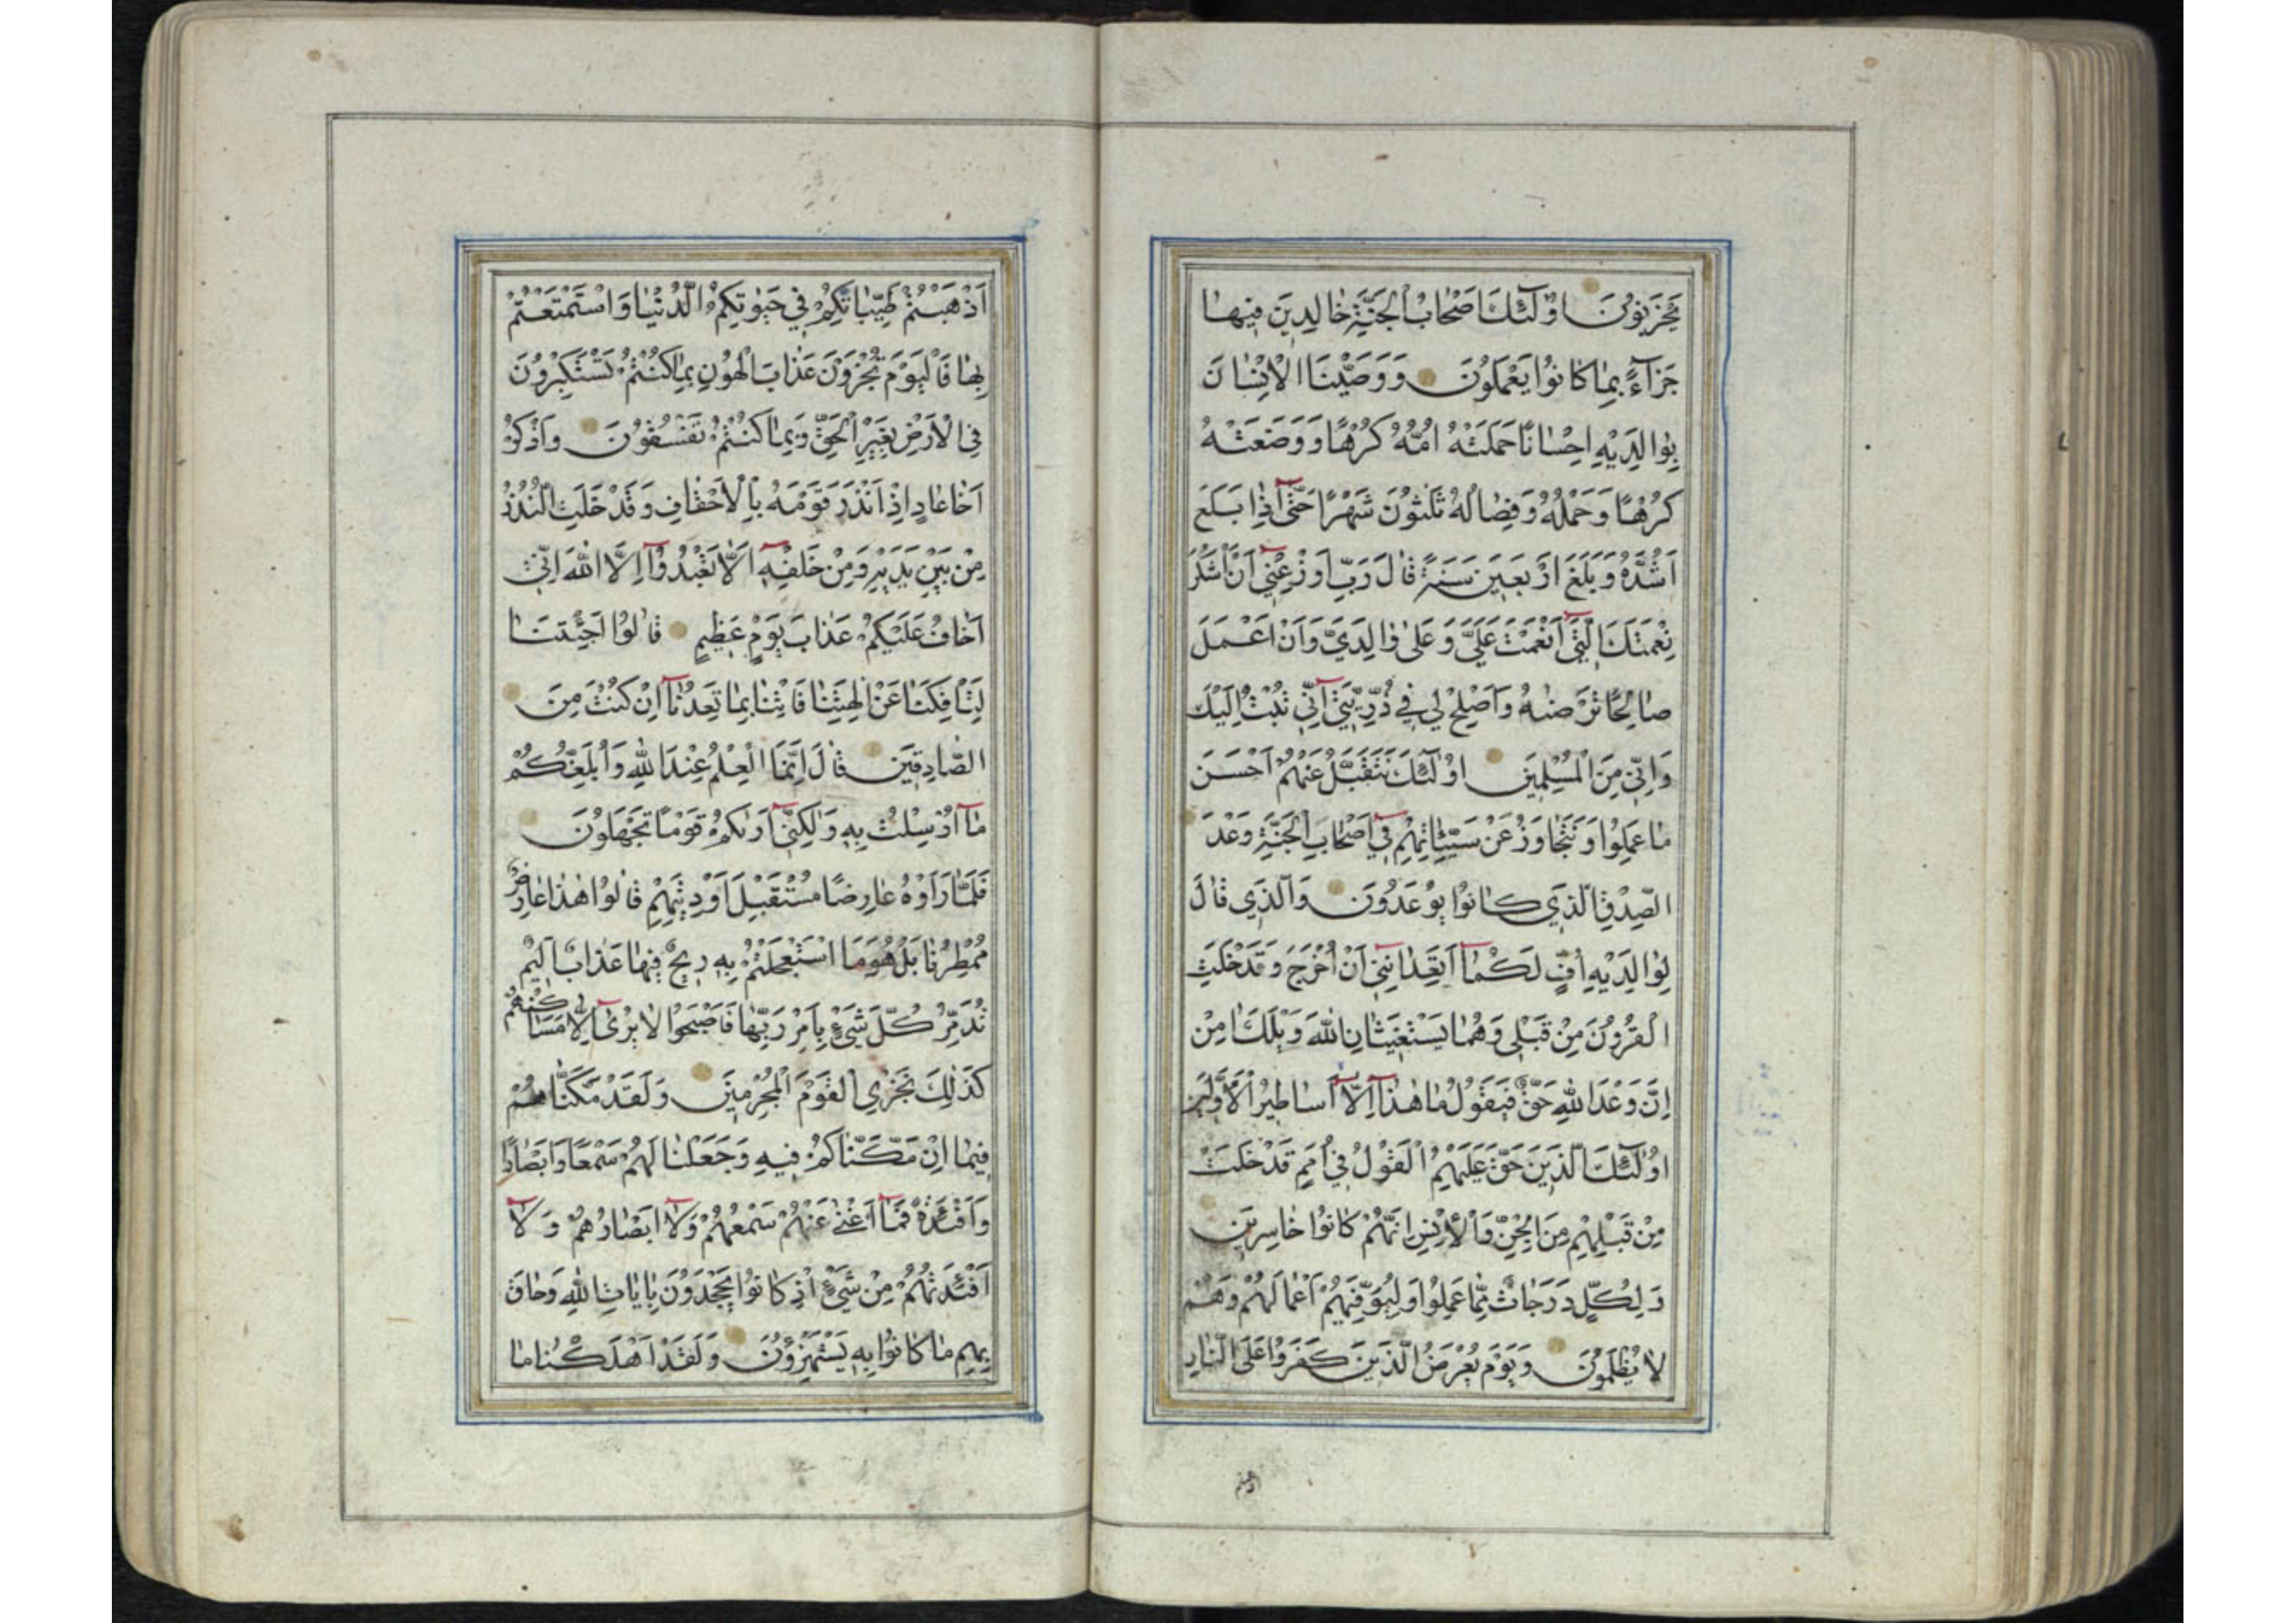 يَحْزَنُونَ اُولٰٓئِكَ اَصْحَابُ الْجَنَّةِ خَالِدِينَ فِيهَا
جَزَآءً بِمَا كَانُوا يَعْمَلُونَ وَوَصَّيْنَا الْاِنْسَانَ
بِوَالِدَيْهِ اِحْسَانًا حَمَلَتْهُ اُمُّهُ كُرْهًا وَوَضَعَتْهُ
كُرْهًا وَحَمْلُهُ وَفِصَالُهُ ثَلٰثُونَ شَهْرًا حَتّٰٓى اِذَا بَلَغَ
اَشُدَّهُ وَبَلَغَ اَرْبَعِينَ سَنَةً قَالَ رَبِّ اَوْزِعْنِٓي اَنْ اَشْكُرَ
نِعْمَتَكَ الَّتِٓي اَنْعَمْتَ عَلَيَّ وَعَلٰى وَالِدَيَّ وَاَنْ اَعْمَلَ
صَالِحًا تَرْضٰهُ وَاَصْلِحْ لِي فِي ذُرِّيَّتِٓي اِنِّي تُبْتُ اِلَيْكَ
وَاِنِّي مِنَ الْمُسْلِمِينَ اُولٰٓئِكَ نَتَقَبَّلُ عَنْهُمْ اَحْسَنَ
مَا عَمِلُوا وَنَتَجَاوَزُ عَنْ سَيِّئَاتِهِمْ فِٓي اَصْحَابِ الْجَنَّةِ وَعْدَ
الصِّدْقِ الَّذِي كَانُوا يُوعَدُونَ وَالَّذِي قَالَ
لِوَالِدَيْهِ اُفٍّ لَكُمَآ اَتَعِدَانِنِٓي اَنْ اُخْرَجَ وَقَدْ خَلَتِ
الْقُرُونُ مِنْ قَبْلِي وَهُمَا يَسْتَغِيثَانِ اللّٰهَ وَيْلَكَ اٰمِنْ
اِنَّ وَعْدَ اللّٰهِ حَقٌّ فَيَقُولُ مَا هٰذَآ اِلَّآ اَسَاطِيرُ الْاَوَّلِينَ
اُولٰٓئِكَ الَّذِينَ حَقَّ عَلَيْهِمُ الْقَوْلُ فِي اُمَمٍ قَدْ خَلَتْ
مِنْ قَبْلِهِمْ مِنَ الْجِنِّ وَالْاِنْسِ اِنَّهُمْ كَانُوا خَاسِرِينَ
وَلِكُلٍّ دَرَجَاتٌ مِمَّا عَمِلُوا وَلِيُوَفِّيَهُمْ اَعْمَالَهُمْ وَهُمْ
لَا يُظْلَمُونَ وَيَوْمَ يُعْرَضُ الَّذِينَ كَفَرُوا عَلَى النَّارِ
اَذْهَبْتُمْ طَيِّبَاتِكُمْ فِي حَيٰوتِكُمُ الدُّنْيَا وَاسْتَمْتَعْتُمْ
بِهَا فَالْيَوْمَ تُجْزَوْنَ عَذَابَ الْهُونِ بِمَا كُنْتُمْ تَسْتَكْبِرُونَ
فِي الْاَرْضِ بِغَيْرِ الْحَقِّ وَبِمَا كُنْتُمْ تَفْسُقُونَ وَاذْكُرْ
اَخَا عَادٍ اِذْ اَنْذَرَ قَوْمَهُ بِالْاَحْقَافِ وَقَدْ خَلَتِ النُّذُرُ
مِنْ بَيْنِ يَدَيْهِ وَمِنْ خَلْفِهِٓ اَلَّا تَعْبُدُوٓا اِلَّا اللّٰهَ اِنِّي
اَخَافُ عَلَيْكُمْ عَذَابَ يَوْمٍ عَظِيمٍ قَالُوا اَجِئْتَنَا
لِتَاْفِكَنَا عَنْ اٰلِهَتِنَا فَاْتِنَا بِمَا تَعِدُنَآ اِنْ كُنْتَ مِنَ
الصَّادِقِينَ قَالَ اِنَّمَا الْعِلْمُ عِنْدَ اللّٰهِ وَاُبَلِّغُكُمْ
مَآ اُرْسِلْتُ بِهِ وَلٰكِنِّٓي اَرٰيكُمْ قَوْمًا تَجْهَلُونَ
فَلَمَّا رَاَوْهُ عَارِضًا مُسْتَقْبِلَ اَوْدِيَتِهِمْ قَالُوا هٰذَا عَارِضٌ
مُمْطِرُنَا بَلْ هُوَ مَا اسْتَعْجَلْتُمْ بِهِ رِيحٌ فِيهَا عَذَابٌ اَلِيمٌ
تُدَمِّرُ كُلَّ شَيْءٍ بِاَمْرِ رَبِّهَا فَاَصْبَحُوا لَا يُرٰٓى اِلَّا مَسَاكِنُهُمْ
كَذٰلِكَ نَجْزِي الْقَوْمَ الْمُجْرِمِينَ وَلَقَدْ مَكَّنَّاهُمْ
فِيمَا اِنْ مَكَّنَّاكُمْ فِيهِ وَجَعَلْنَا لَهُمْ سَمْعًا وَاَبْصَارًا
وَاَفْئِدَةً فَمَآ اَغْنٰى عَنْهُمْ سَمْعُهُمْ وَلَآ اَبْصَارُهُمْ وَلَآ
اَفْئِدَتُهُمْ مِنْ شَيْءٍ اِذْ كَانُوا يَجْحَدُونَ بِاٰيَاتِ اللّٰهِ وَحَاقَ
بِهِمْ مَا كَانُوا بِهِ يَسْتَهْزِؤُنَ وَلَقَدْ اَهْلَكْنَا مَا